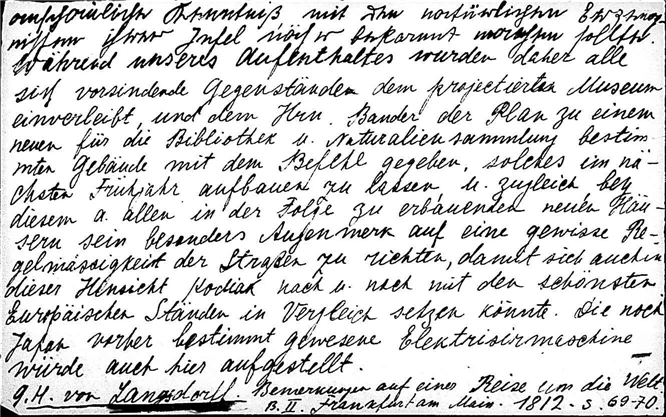 anschauliche Kenntniß mit den natürlichen Erzeug-
nissen ihrer Insel näher bekannt machen sollte.
Während unseres Aufenthaltes wurden daher alle
sich vorfindende Gegenständen dem projectierten Museum
einverleibt, und dem Hrn. Bander der Plan zu einem
neuen für die Bibliothek u. Naturaliensammlung bestim-
mten Gebäude mit dem Befehl gegeben, solches im nä-
chsten Frühjahr aufbauen zu lassen u. zugleich bey
diesem u. allen in der Folge zu erbauenden neuen Häu-
sern sein besonders Augenmerk auf eine gewisse Re-
gelmässigkeit der Straßen zu richten, damit sich auch in
dieser Hinsicht Kodiak nach u. nach mit den schönsten
Europäischen Städten in Vergleich setzen könnte. Die nach
Japan vorher bestimmt gewesene Elektrisirmaschine
wurde auch hier aufgestellt.
G. H. von Langsdorff. Bemerkungen auf einer Reise um die Welt
B. II. Frankfurt am Main. 1812. S. 69-70.